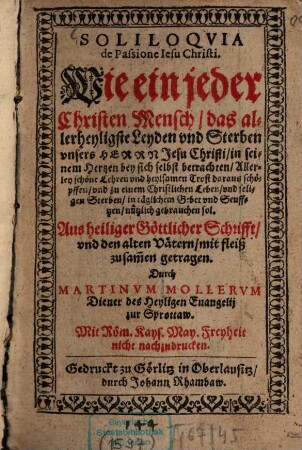 SOLILOQVIA
de Passione Iesu Christi.
Wie ein jeder
Christen Mensch / das al-
lerheyligste Leyden vnd Sterben
vnsers HERRN Jesu Christi / in sei-
nem Hertzen bey sich selbst betrachten / Aller-
ley schöne Lehren vnd heylsamen Trost daraus schöp-
pffen / vnd zu einem Christlichen Leben / vnd seli-
gen Sterben / in täglichem Gebet vnd Seuff-
tzen / nützlich gebrauchen sol.
Aus heiliger Göttlicher Schrifft /
vnd den alten Vätern / mit fleiß
zusamen getragen.
Durch
MARTINVM MOLLERVM
Diener des Heyligen Euangelij
zur Sprottaw.
Mit Röm. Kays. May. Freyheit
nicht nachzudrucken.
Gedruckt zu Görlitz in Oberlausitz /
durch Johann Rhambaw.